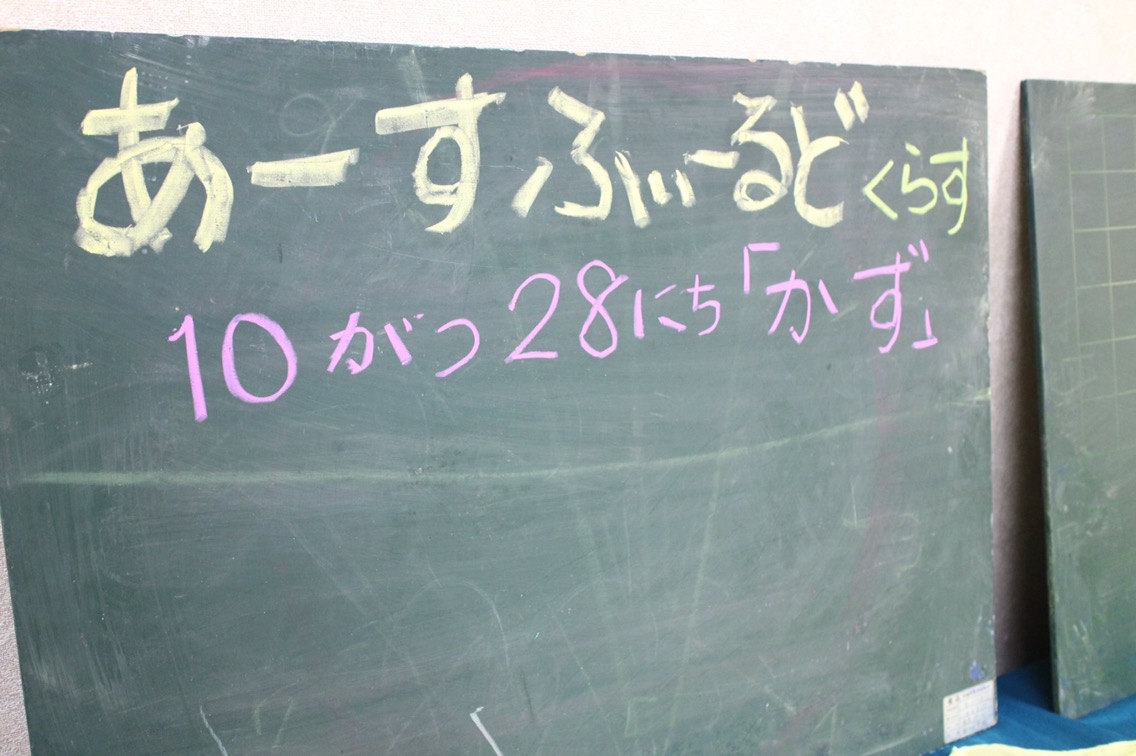 あーすふぃーるどくらす
10がつ28にち「かず」